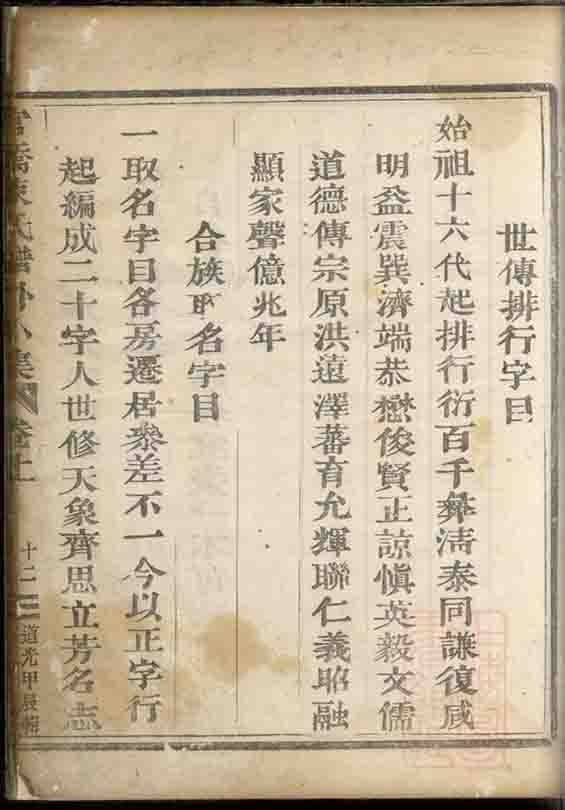 世傳排行字目
始祖十六代起排行衍百千彝清泰同謙復咸
明益震巽濟端恭懋後賢正諒愼英毅文儒
道德傳宗原洪遠澤蕃育允輝聯仁義昭融
顯家聲億兆年
合族取名字目
一取名字目各房遷居叅差不一今以正字行
起編成二十字人世修天象齊思立芳名志
橋陳氏譜外小集 卷上 十二 道光甲辰輯